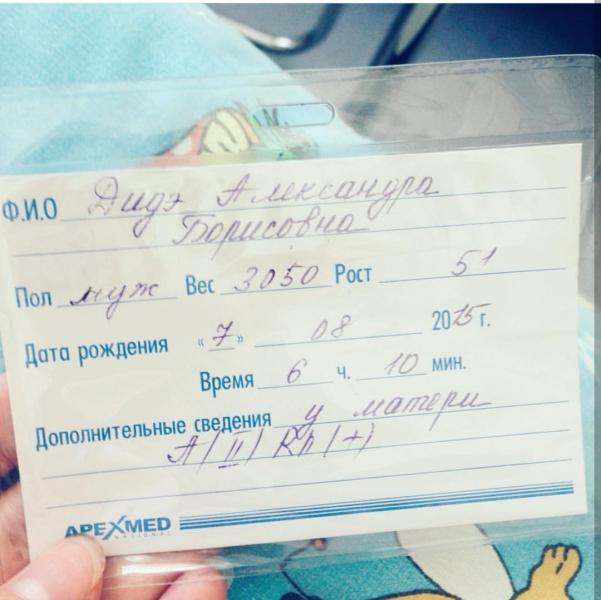 Ф.И.О Дидэ Александра
Борисовна
Пол муж Вес 3050 Рост 51
Дата рождения «7» 08 2015 г.
Время 6 ч. 10 мин.
Дополнительные сведения у матери
A(II) Rh(+)
APEXMED
NATIONAL